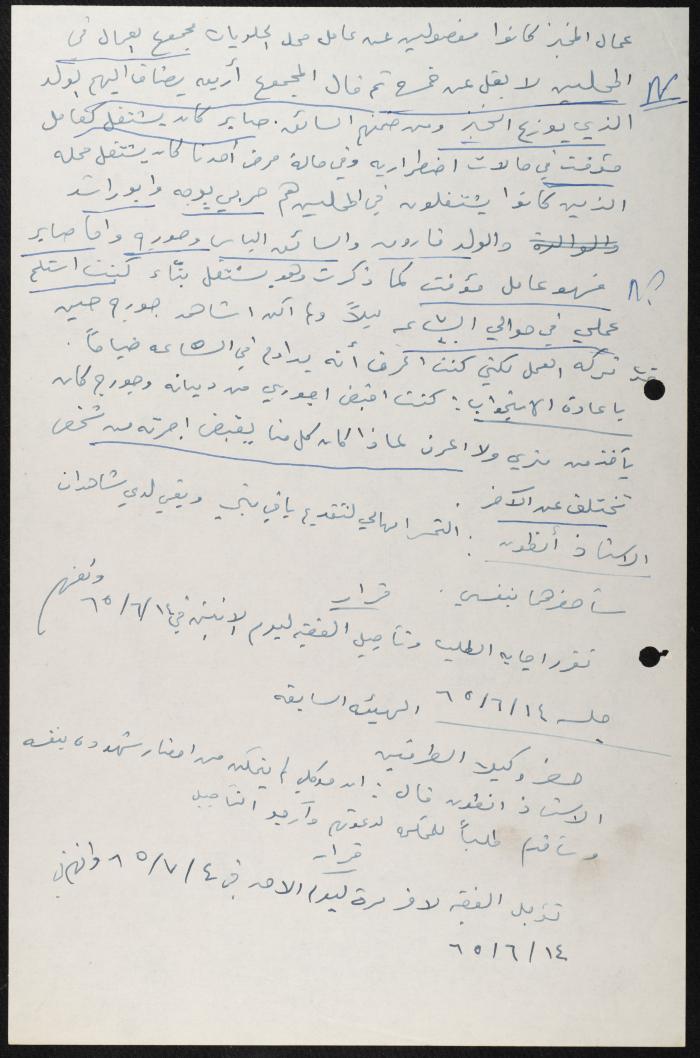 عمال المخبز كانوا مفصولين عن عامل محل الحلويات مجموع العمال في
المحلين لا يقل عن خمسة ثم قال المجموع أربعه يضاف اليهم الولد
الذي يوزع الخبز ومن ضمنهم السائق. صابر كان يشتغل كعامل
مؤقت في حالات اضطراريه وفي حالة مرض أحدنا كان يشتغل محله
الذين كانوا يشتغلون في المحلين هم حربي بوجه وابو راشد
والولد فاروق والسائق الياس وجورج واما صابر
فهو عامل مؤقت كما ذكرت وهو يشتغل بنّاء كنت استلم
عملي في حوالي الساعه ليلاً ولم اكن اشاهد جورج حين
تركه العمل لكني كنت اعرف أنه يداوم في الساعه صباحاً.
باعادة الاستجواب: كنت اقبض اجوري من ديبانه وجورج كان
يأخذ من نزي ولا اعرف لماذا كان كل منا يقبض اجرته من شخص
تختلف عن الآخر
الاستاذ أنطون: التمس امهالي لتقديم باقي بينتي وبقي لدي شاهدان
سأحضرهما بنفسي.
قرار
تقرر اجابه الطلب وتأجيل القضيه ليوم الاثنين في ٦٥/٦/١٤ وتفهم
جلسه ٦٥/٦/١٤ الهيئه السابقه
حضر وكيلا الطرفين
الاستاذ انطون قال: ان موكلي لم يتمكن من احضار شهوده بنفسه
وسأقدم طلباً للمحكمه لدعوتهم وأرجو التأجيل
قرار
تؤجل القضيه لاخر مرة ليوم الاحد في ٦٥/٧/٤ وافهم في
٦٥/٦/١٤